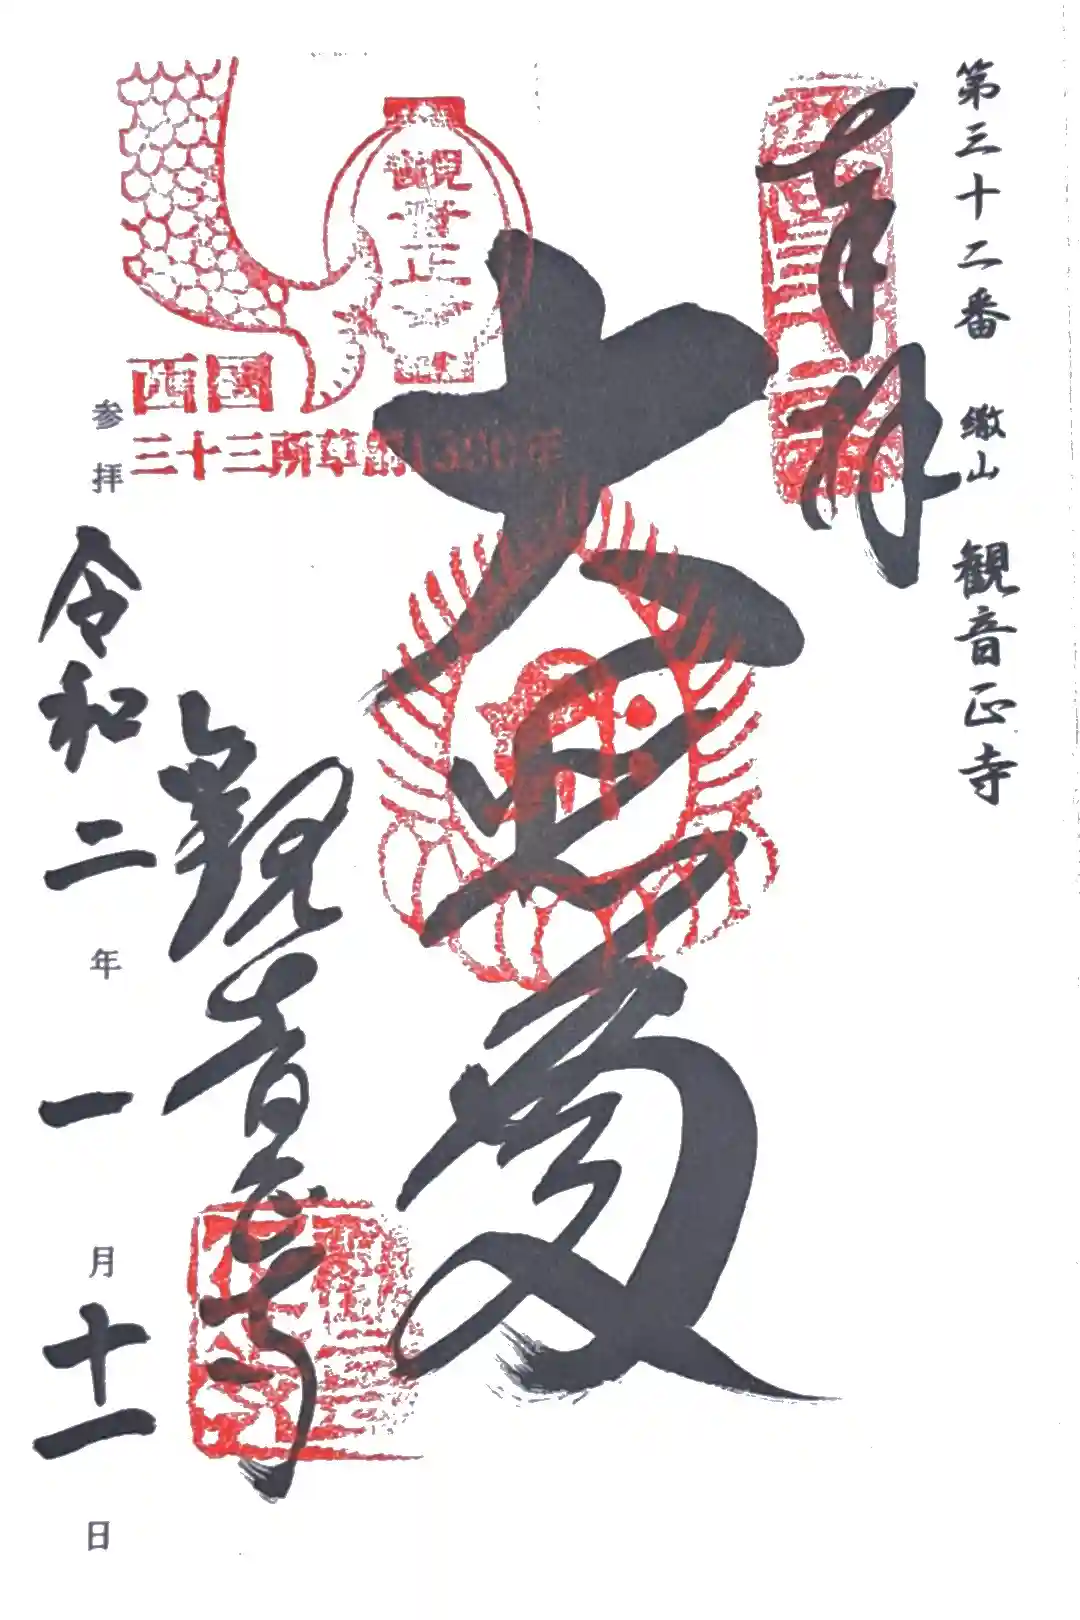 第三十二番 繖山 観音正寺
奉拝
大悲殿
觀音正寺
西國
三十三所草創1300年
觀音正寺
参拝
令和二年一月十一日